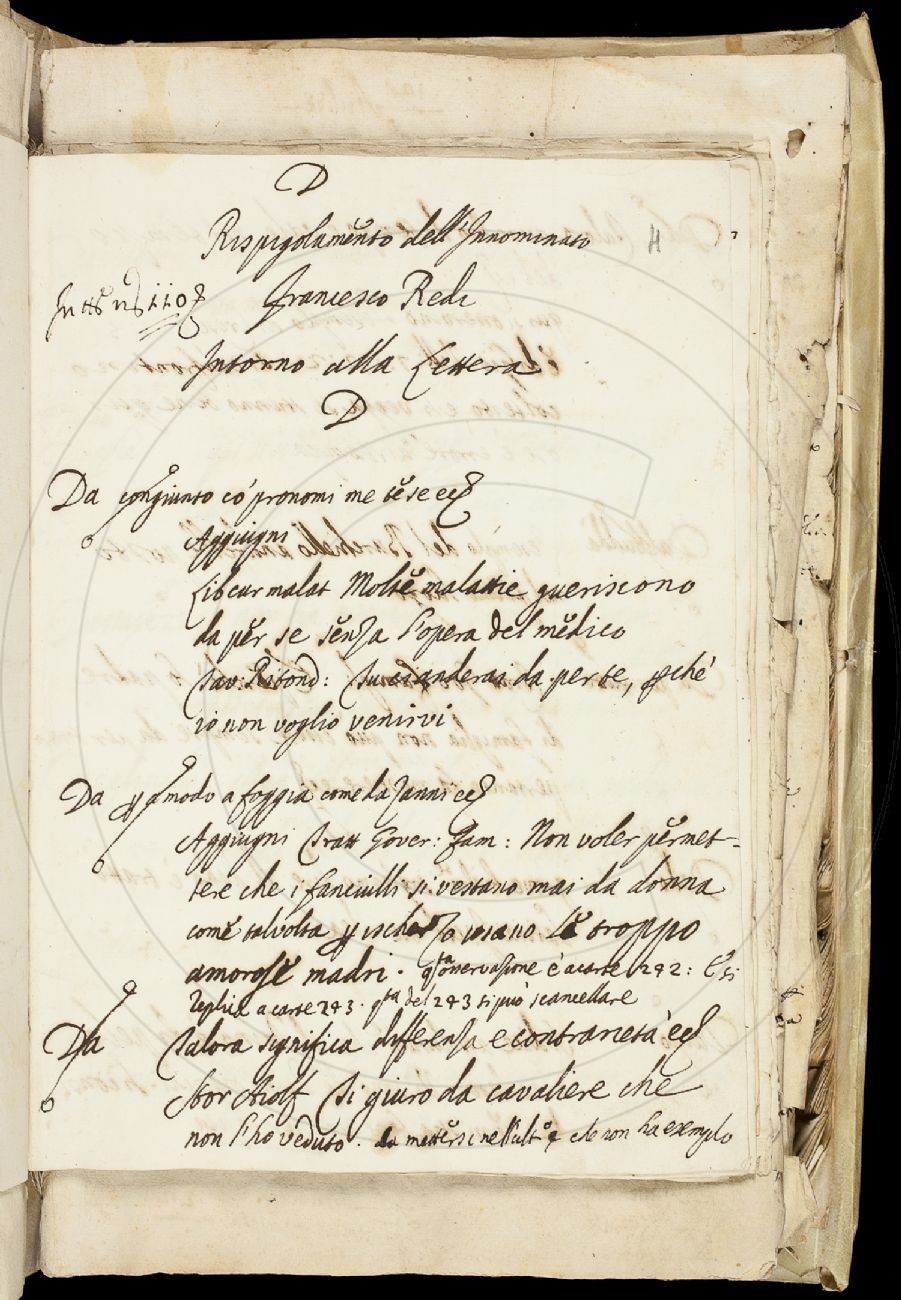 D
Rispigolamento dell'Innominato
H
Francesco Redi
Intorno alla Lettera
D
Da congiunto co' pronomi me te se ecc
Aggiugni
Libr cur malat Molte malattie gueriscono
da per se senza l'opera del medico
Tav. Riton: Tu ci anderai da per te, pche'
io non voglio venirvi
Da p modo a foggia come da Zanni ecc
Aggiugni Tratt Gover: Fam: Non voler permet-
tere che i fanciulli si vestano mai da donna
come talvolta p ischerzo usano le troppo
amorose madri. qta osservazione è a carte 242: E si
replica a carte 243. qta del 243 si può scancellare
Da Talora significa differenza e contrarietà ecc
Stor Aiolf Ti giuro da cavaliere che
non l'ho veduto. da mettersi nell'ult° che non ha exemplo